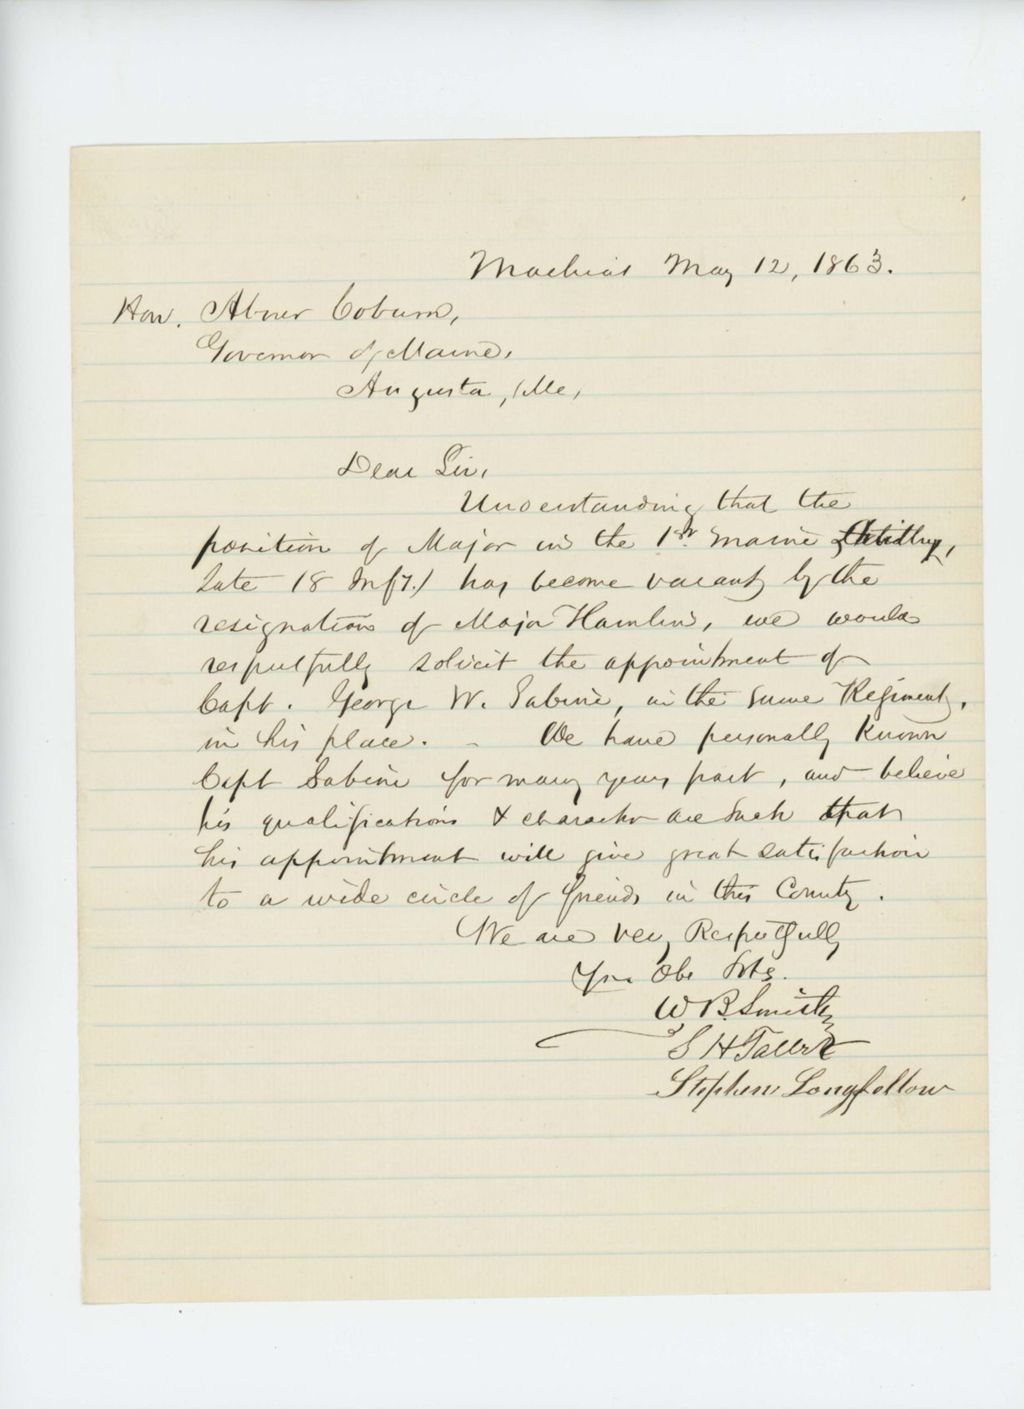 Machias May 12, 1863.
Hon. Abner Coburn,
Governor of Maine,
Augusta, Me,
Dear Sir,
Understanding that the
position of Major in the 1st Maine Artillery,
late 18 Infy.) has become vacant by the
resignation of Major Hamlin, we would
respectfully solicit the appointment of
Capt. George W. Sabine, in the same Regiment,
in his place. - We have personally known
Capt Sabine for many years past, and believe
his qualifications & character are such that
his appointment will give great satisfaction
to a wide circle of friends in this County.
We are very Respectfully
Your Obt Svts.
W B. Smith
S H Talbot
Stephen Longfellow